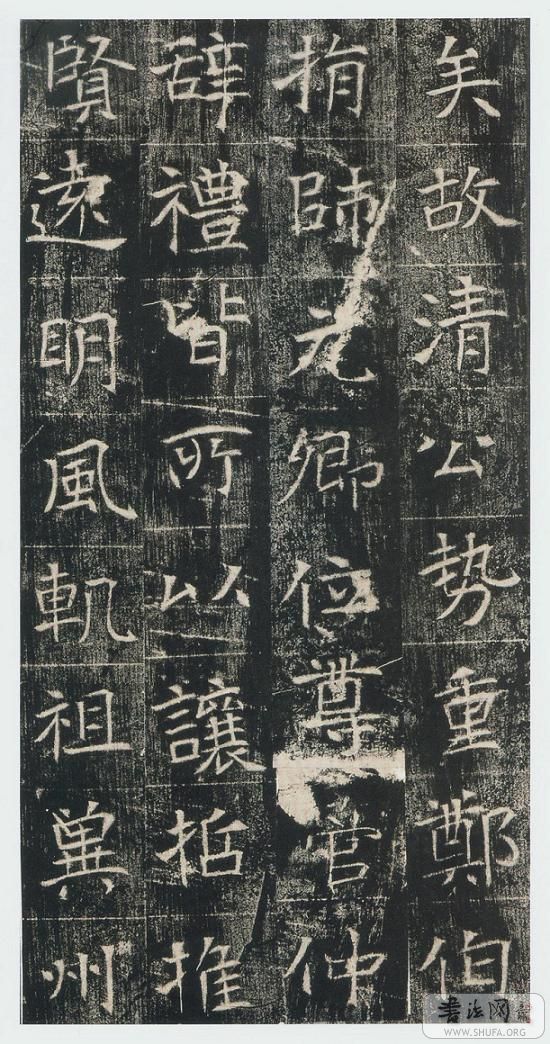 矣故清公勢重鄭伯
捐師元卿位尊管仲
辞禮皆所以讓哲推
賢遠明風軌祖兾州
书法网
WWW.SHUFA.ORG